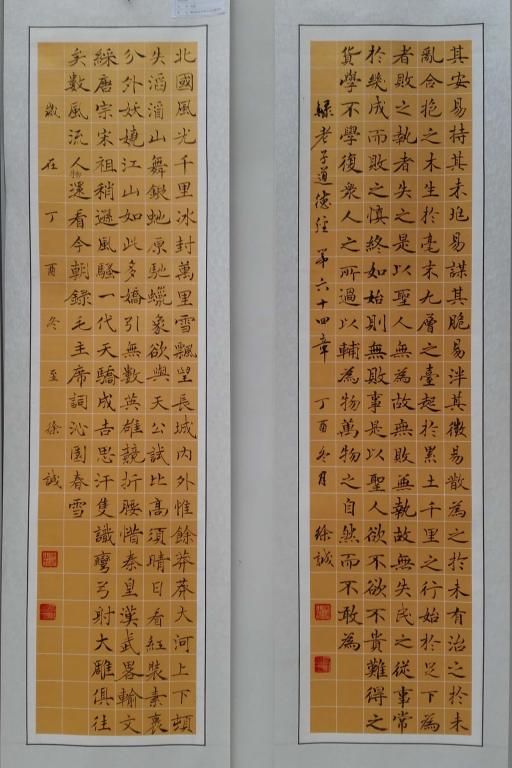 其安易持其未兆易謀其脆易泮其微易散為之於未有治之於未
亂合抱之木生於毫末九層之臺起於累土千里之行始於足下為
者敗之執者失之是以聖人無為故無敗無執故無失民之從事常
於幾成而敗之慎終如始則無敗事是以聖人欲不欲不貴難得之
貨學不學復衆人之所過以輔為物萬物之自然而不敢為
錄老子道德經 第六十四章 丁酉冬月 徐誠
北國風光千里冰封萬里雪飄望長城內外惟餘莽莽大河上下頓
失滔滔山舞銀蛇原馳蠟象欲與天公試比高須晴日看紅裝素裹
分外妖嬈江山如此多嬌引無數英雄競折腰惜秦皇漢武畧輸文
綵唐宗宋祖稍遜風騷一代天驕成吉思汗隻識彎弓射大雕俱往
矣數風流人物還看今朝錄毛主席詞沁園春雪
歲在丁酉冬至徐誠